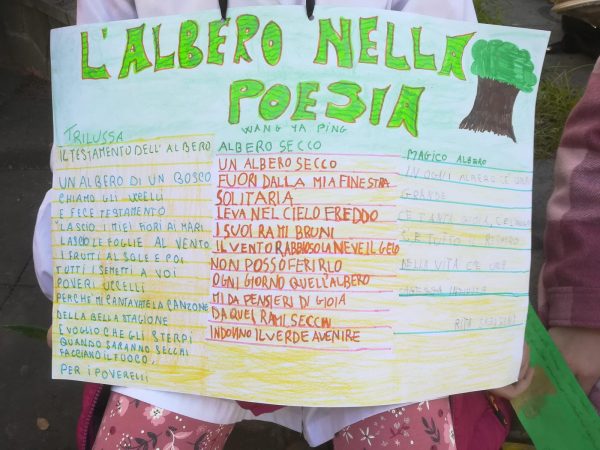 L'ALBERO NELLA
POESIA
TRILUSSA
IL TESTAMENTO DELL'ALBERO
UN ALBERO DI UN BOSCO
CHIAMÒ GLI UCCELLI
E FECE TESTAMENTO
LASCIO I MIEI FIORI AI MARI
LASCIO LE FOGLIE AL VENTO
I FRUTTI AL SOLE E POI
TUTTI I SEMETTI A VOI
POVERI UCCELLI
PERCHÈ MI CANTAVATE LA CANZONE
DELLA BELLA STAGIONE
E VOGLIO CHE GLI STERPI
QUANDO SARANNO SECCHI
FACCIANO IL FUOCO,
PER I POVERELLI
WANG YA PING
ALBERO SECCO
UN ALBERO SECCO
FUORI DALLA MIA FINESTRA
SOLITARIA
LEVA NEL CIELO FREDDO
I SUOI RAMI BRUNI
IL VENTO RABBIOSO LA NEVE IL GELO
NON POSSO FERIRLO
OGNI GIORNO QUELL'ALBERO
MI DA PENSIERI DI GIOIA
DA QUEI RAMI SECCHI
INDOVINO IL VERDE AVENIRE
MAGICO ALBERO
IN OGNI ALBERO C'È
GRANDE
NELLA VITA C'È
RITA